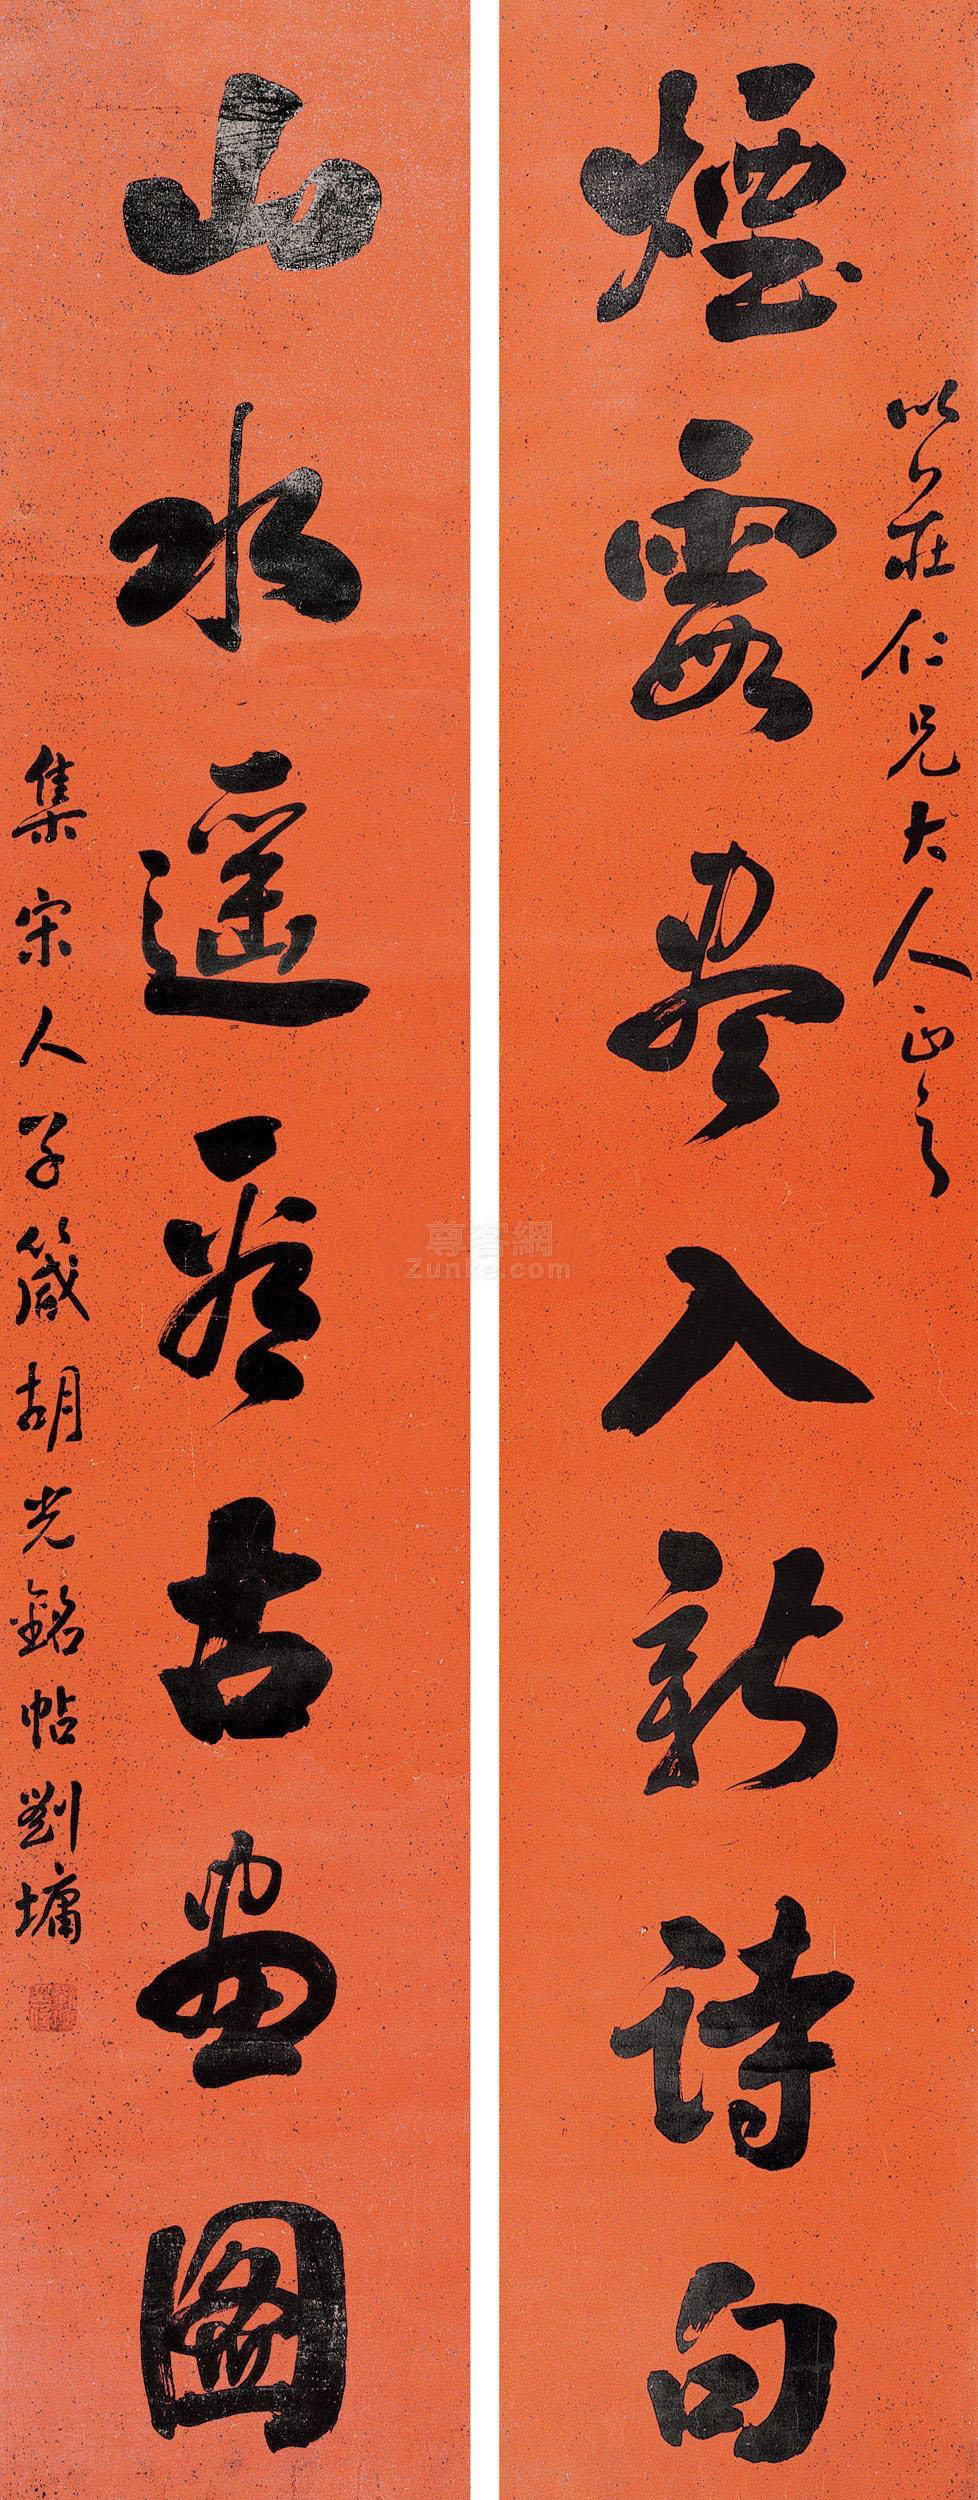 以莊仁兄大人正之
煙霞盡入新詩句
山水遥古畫圖
集宋人子箴胡光銘帖劉墉
尊客網
Zunke.com